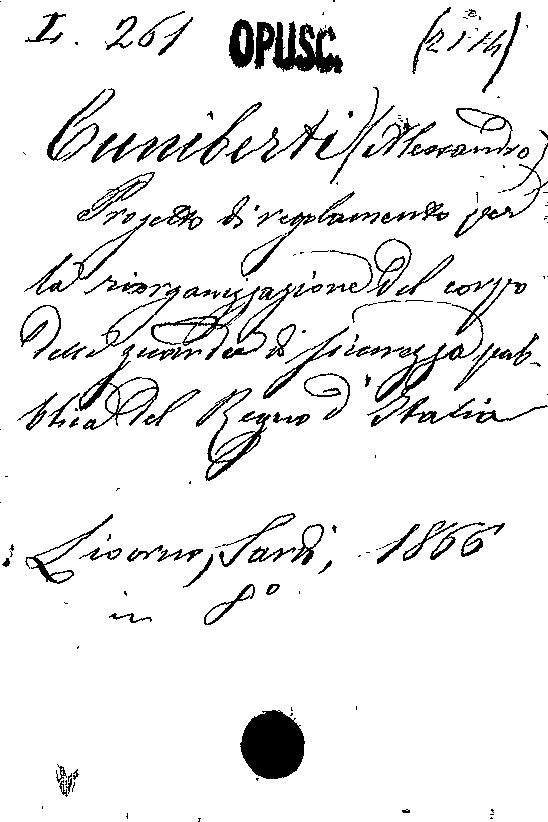 L. 261 OPUSC. (21 14)
Cuniberti (Alessandro)
Progetto di regolamento per
la riorganizzazione del corpo
delle guardie di sicurezza pub-
blica del Regno d'Italia
Livorno, Sardi, 1866
in 8º